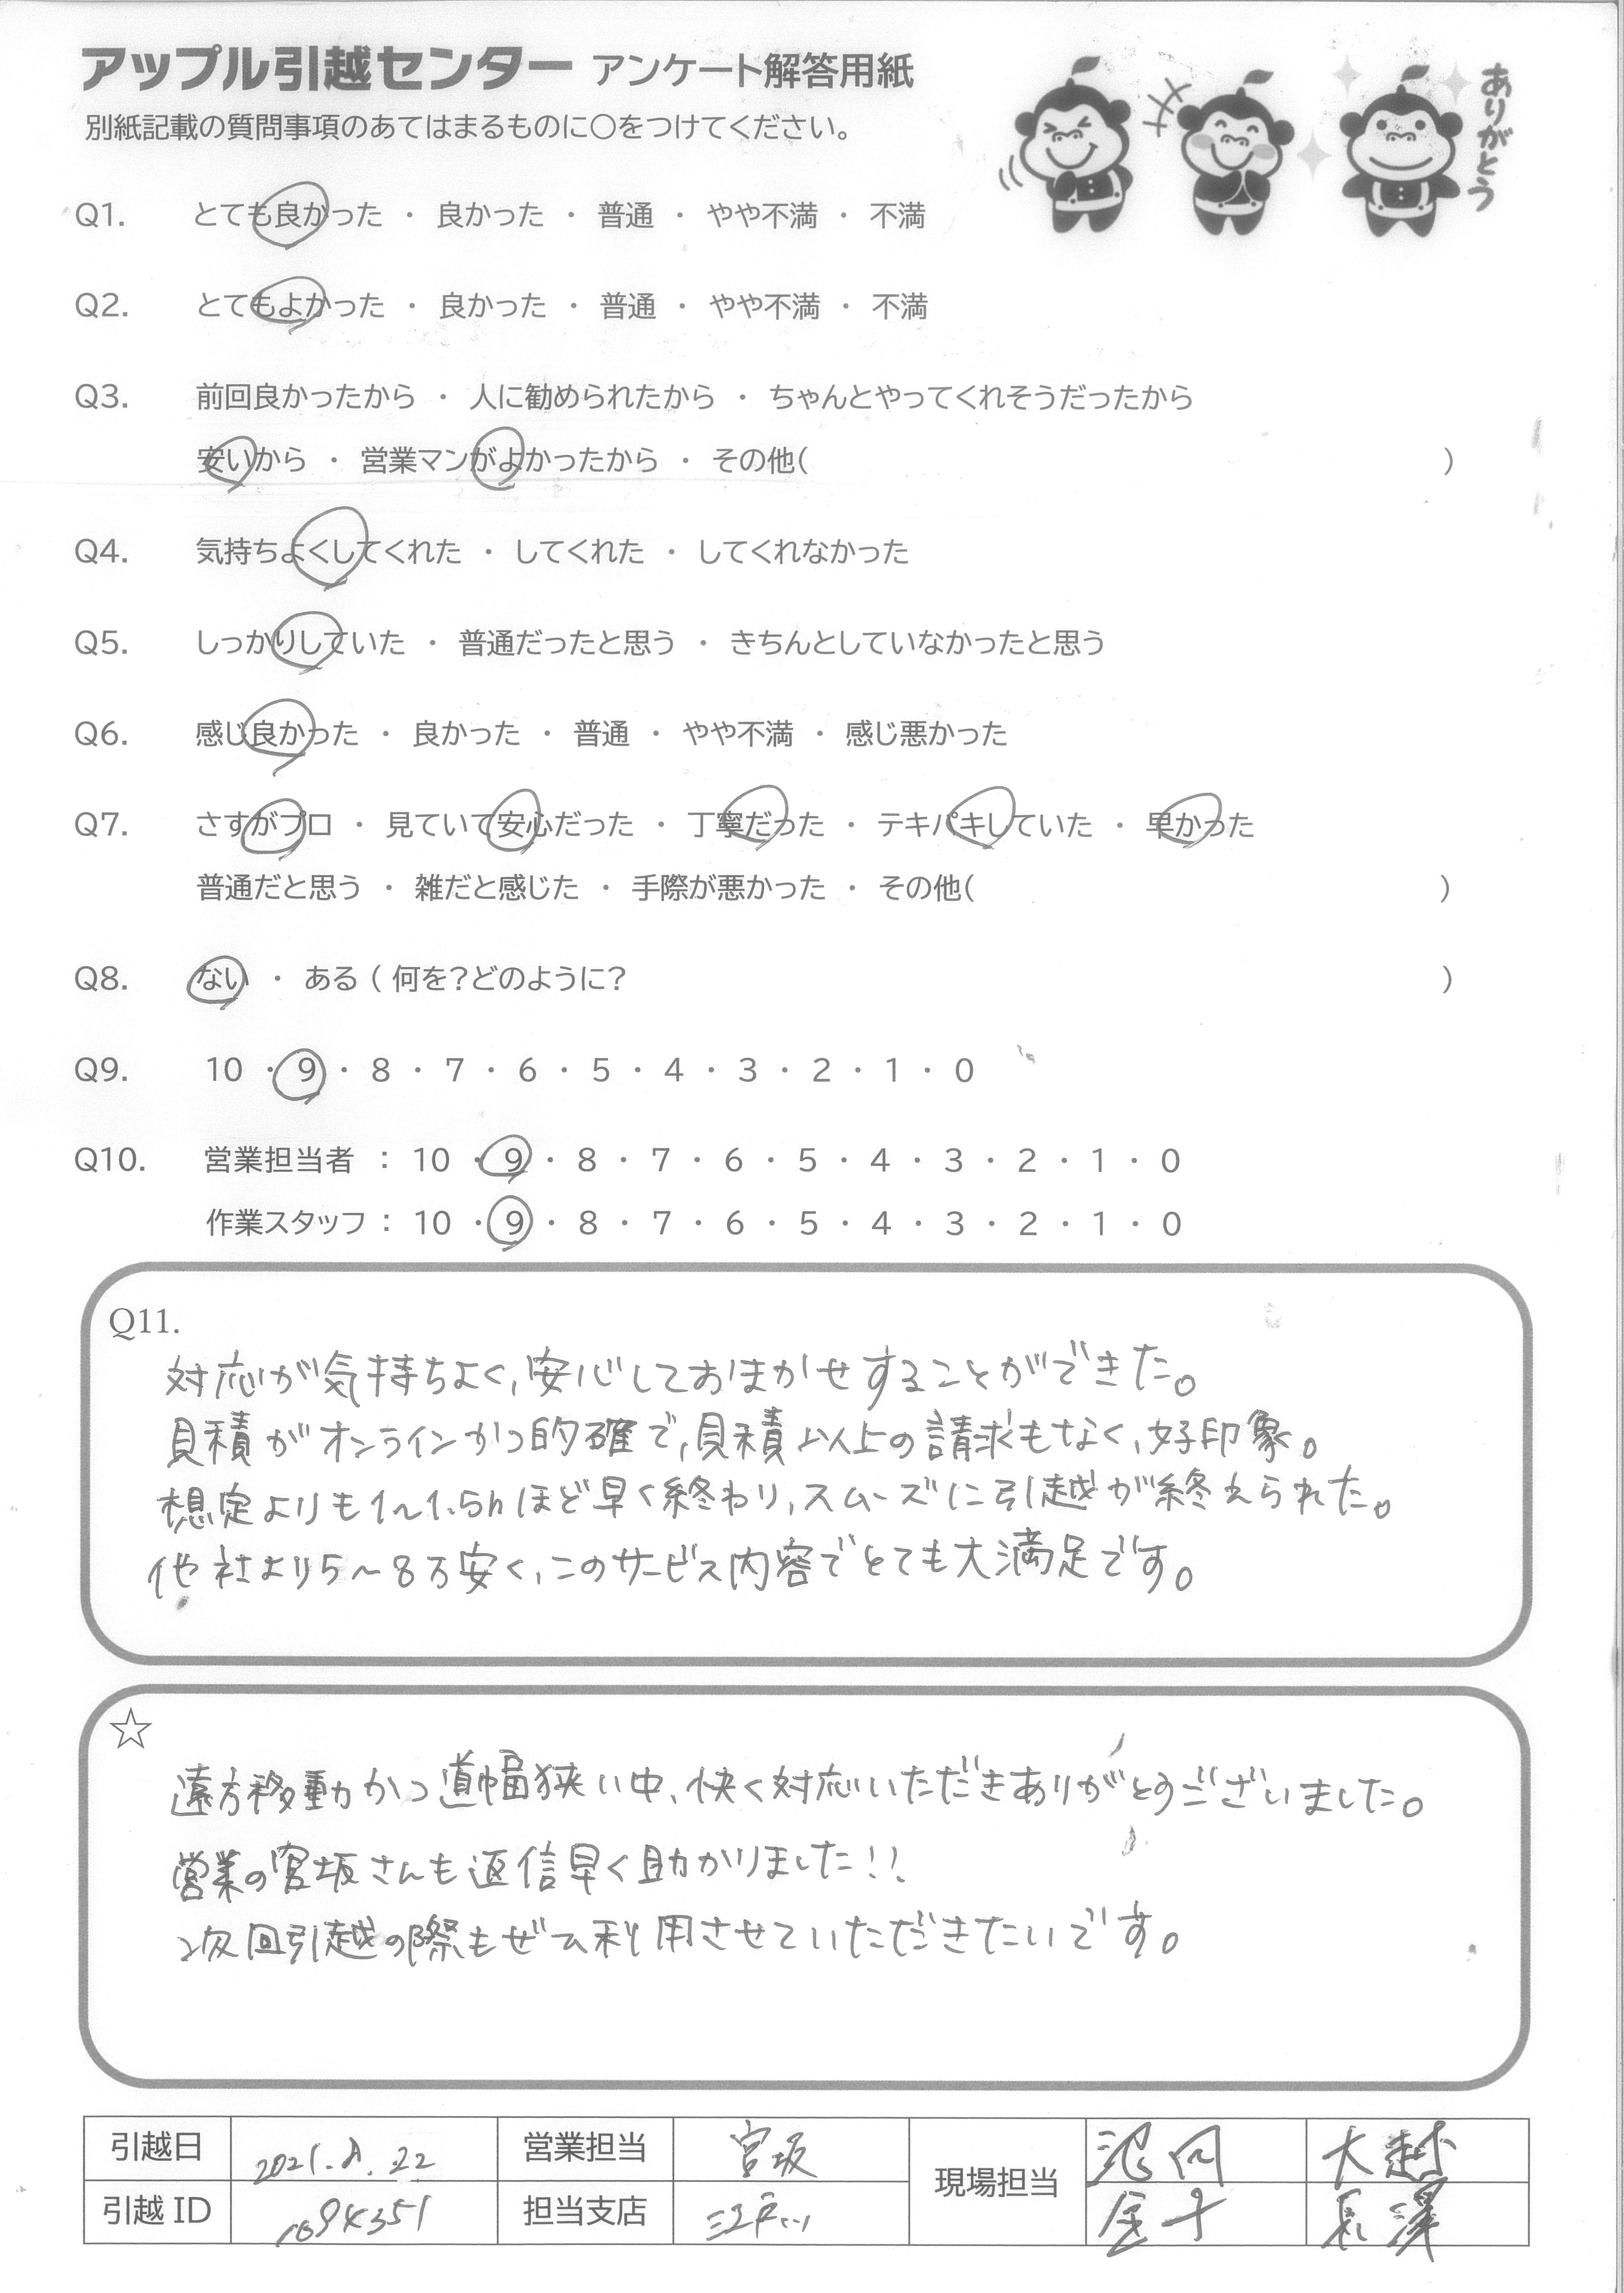 アップル引越センター アンケート解答用紙
別紙記載の質問事項のあてはまるものに〇をつけてください。
ありがとう
Q1. とても良かった ・ 良かった ・ 普通 ・ やや不満 ・ 不満
Q2. とてもよかった ・ 良かった ・ 普通 ・ やや不満 ・ 不満
Q3. 前回良かったから ・ 人に勧められたから ・ ちゃんとやってくれそうだったから
安いから ・ 営業マンがよかったから ・ その他( )
Q4. 気持ちよくしてくれた ・ してくれた ・ してくれなかった
Q5. しっかりしていた ・ 普通だったと思う ・ きちんとしていなかったと思う
Q6. 感じ良かった ・ 良かった ・ 普通 ・ やや不満 ・ 感じ悪かった
Q7. さすがプロ ・ 見ていて安心だった ・ 丁寧だった ・ テキパキしていた ・ 早かった
普通だと思う ・ 雑だと感じた ・ 手際が悪かった ・ その他( )
Q8. ない ・ ある ( 何を?どのように? )
Q9. 10 ・ 9 ・ 8 ・ 7 ・ 6 ・ 5 ・ 4 ・ 3 ・ 2 ・ 1 ・ 0
Q10. 営業担当者 : 10 ・ 9 ・ 8 ・ 7 ・ 6 ・ 5 ・ 4 ・ 3 ・ 2 ・ 1 ・ 0
作業スタッフ : 10 ・ 9 ・ 8 ・ 7 ・ 6 ・ 5 ・ 4 ・ 3 ・ 2 ・ 1 ・ 0
Q11.
対応が気持ちよく、安心しておまかせすることができた。
見積がオンラインかつ的確で、見積以上の請求もなく、好印象。
想定よりも1~1.5hほど早く終わり、スムーズに引越が終えられた。
他社より5~8万安く、このサービス内容でとても大満足です。
☆
遠方移動かつ道幅狭い中、快く対応いただきありがとうございました。
営業の宮坂さんも返信早く助かりました!!
次回引越の際もぜひ利用させていただきたいです。
引越日 営業担当 宮坂 現場担当 大越
引越ID 担当支店 江戸川 金子